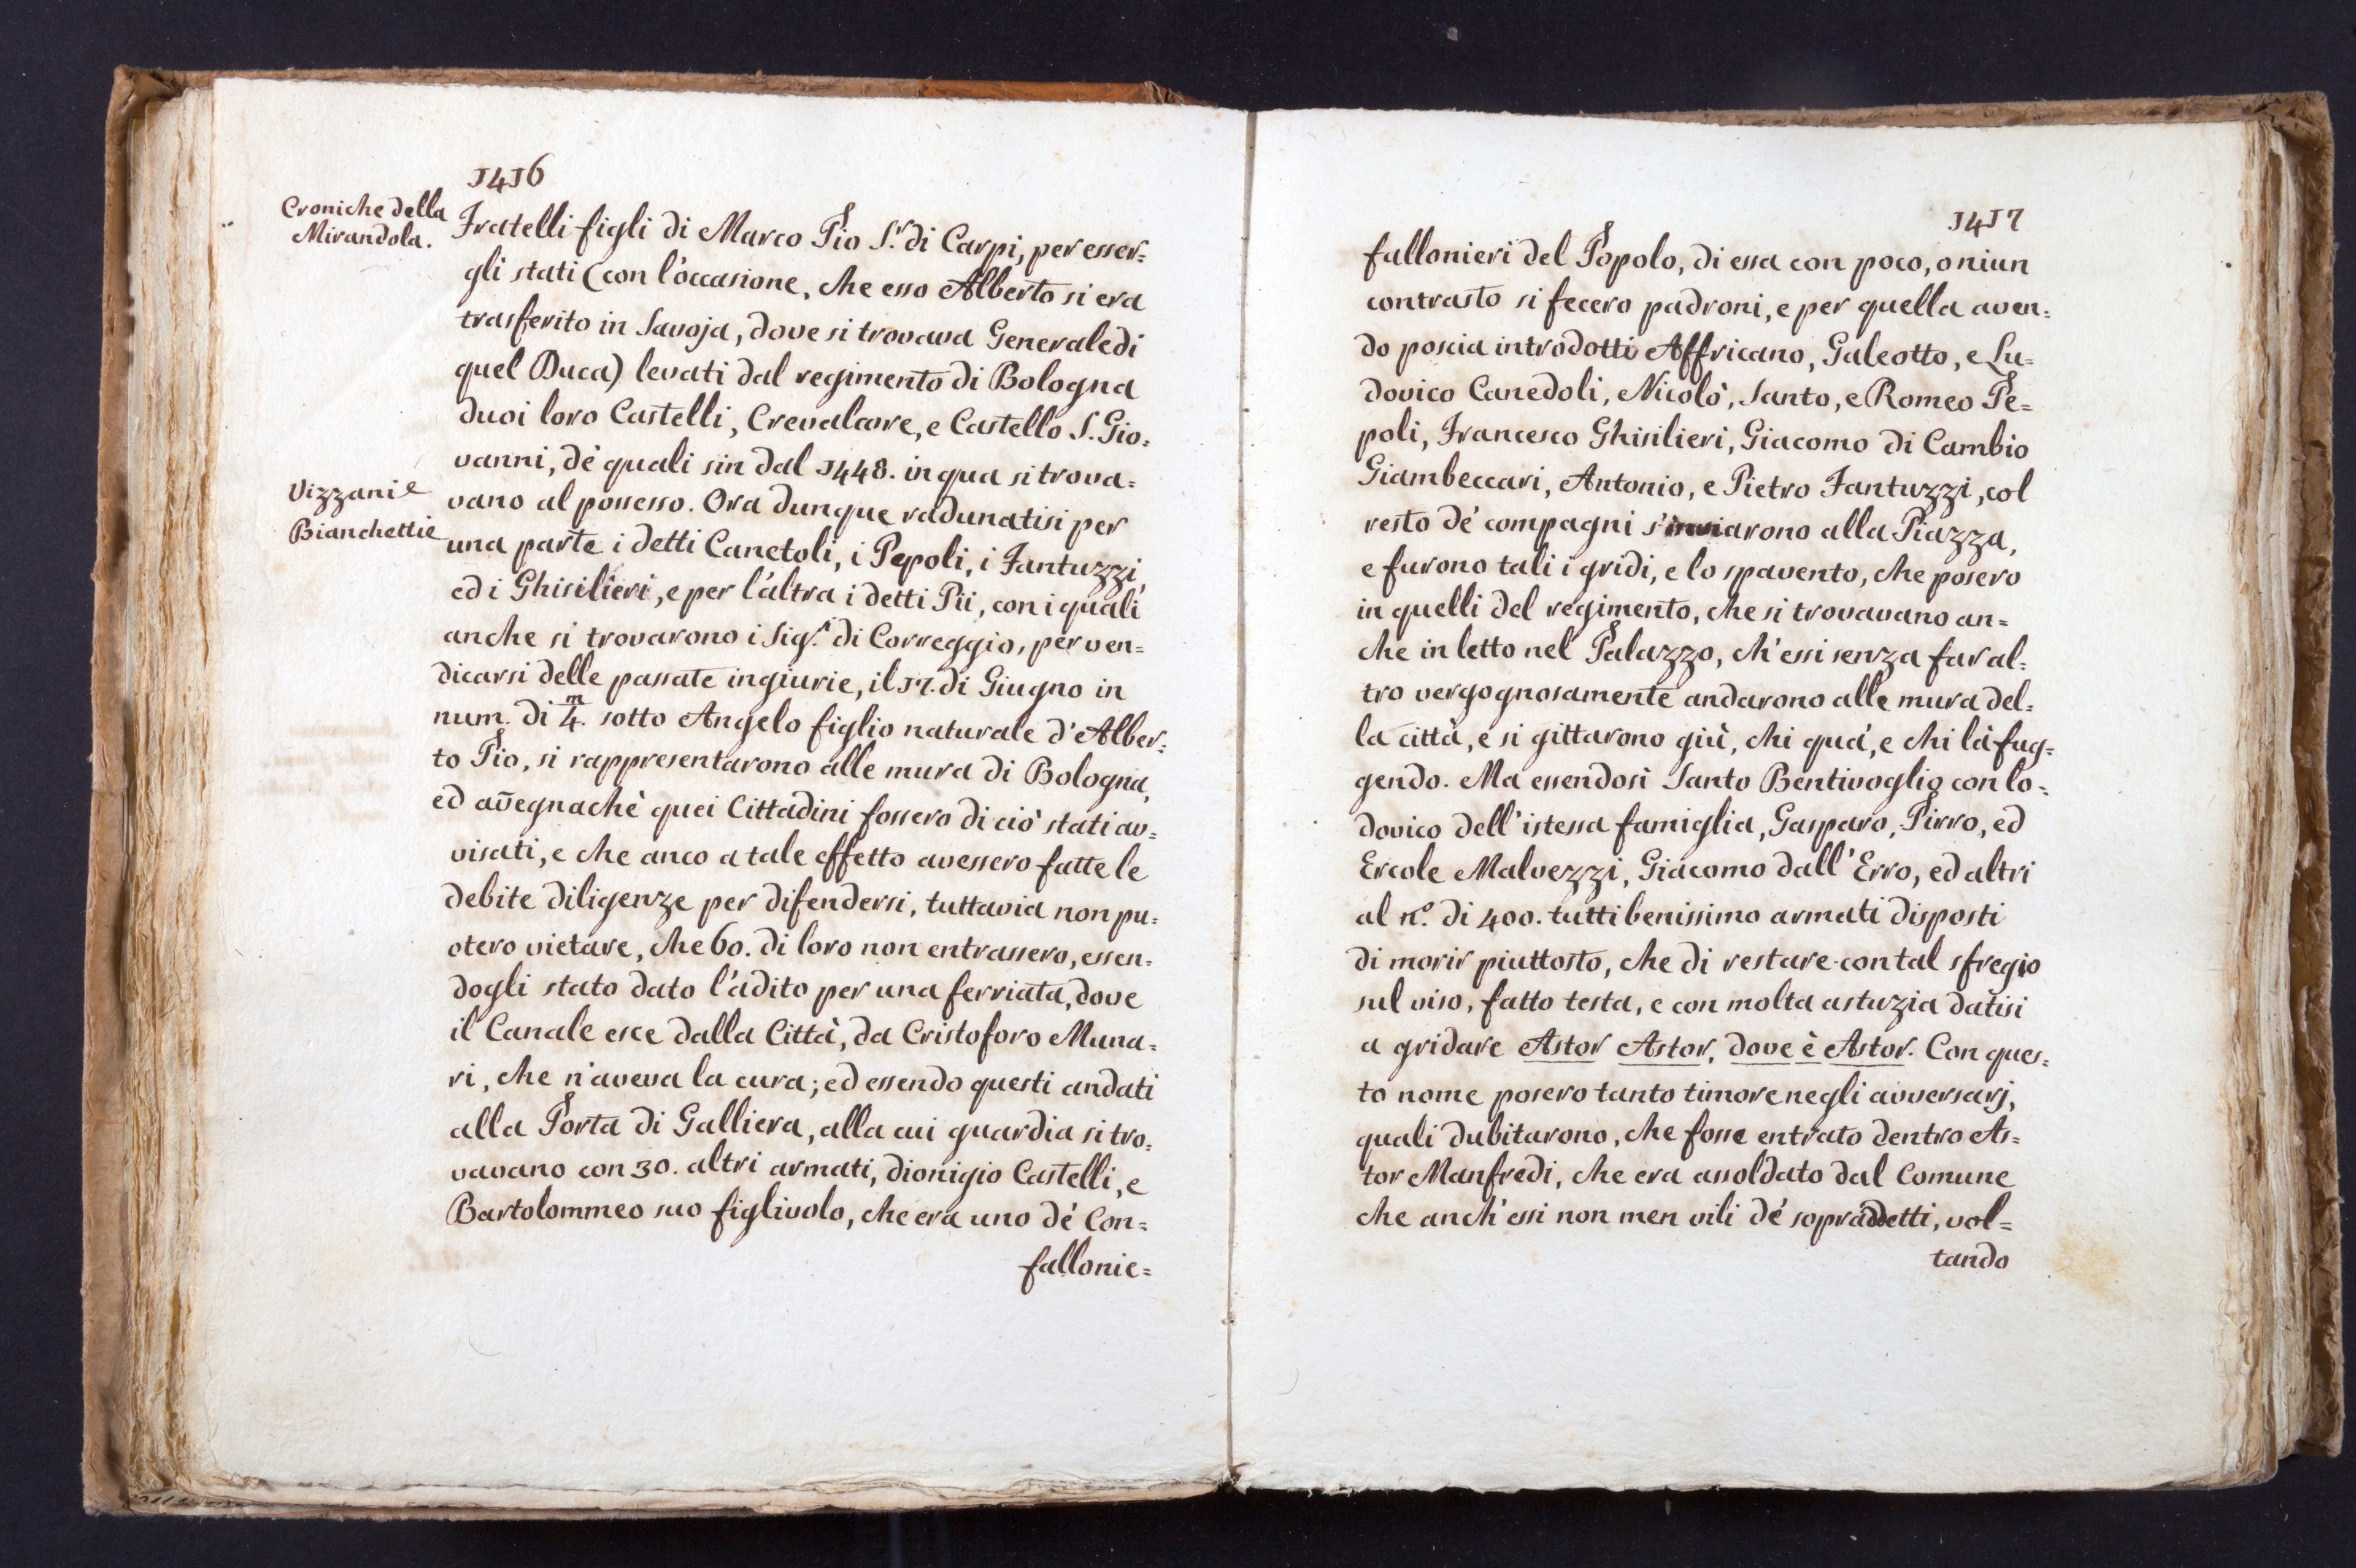 1416
Croniche della
Mirandola.
Fratelli figli di Marco Pio S.r di Carpi, per esser=
gli stati (con l'occasione, che esso Alberto si era
trasferito in Savoja, dove si trovava Generale di
quel Duca) levati dal regimento di Bologna
duoi loro Castelli, Crevalcore, e Castello S. Gio=
vanni, de' quali sin dal 1448. in qua si trova=
Vizzani e
Bianchettie
vano al possesso. Ora dunque radunatisi per
una parte i detti Canetoli, i Pepoli, i Fantuzzi,
ed i Ghisilieri, e per l'altra i detti Pii, con i quali
anche si trovarono i Sig.i di Correggio, per ven=
dicarsi delle passate ingiurie, il 17. di Giugno in
num. di 4.m sotto Angelo figlio naturale d'Alber=
to Pio, si rappresentarono alle mura di Bologna,
ed av̄egnachè quei Cittadini fossero di ciò stati av=
visati, e che anco a tale effetto avessero fatte le
debite diligenze per difendersi, tuttavia non pu=
otero vietare, che 60. di loro non entrassero, essen=
dogli stato dato l'adito per una ferriata, dove
il Canale esce dalla Città, da Cristoforo Muna=
ri, che n'aveva la cura; ed essendo questi andati
alla Porta di Galliera, alla cui guardia si tro=
vavano con 30. altri armati, dionigio Castelli, e
Bartolommeo suo figlivolo, che era uno de' Con=
fallonie=
1417
fallonieri del Popolo, di essa con poco, o niun
contrasto si fecero padroni, e per quella aven=
do poscia introdotti Affricano, Galeotto, e Lu=
dovico Canedoli, Nicolò, Santo, e Romeo Pe=
poli, Francesco Ghisilieri, Giacomo di Cambio
Giambeccari, Antonio, e Pietro Fantuzzi, col
resto de' compagni s'inviarono alla Piazza,
e furono tali i gridi, e lo spavento, che posero
in quelli del regimento, che si trovavano an=
che in letto nel Palazzo, ch'essi senza far al=
tro vergognosamente andarono alle mura del=
la città, e si gittarono giù, chi quà, e chi là fug=
gendo. Ma essendosi Santo Bentivoglio con lo=
dovico dell'istessa famiglia, Gasparo, Pirro, ed
Ercole Malvezzi, Giacomo dall'Erro, ed altri
al n.o di 400. tutti benissimo armati disposti
di morir piuttosto, che di restare con tal sfregio
sul viso, fatto testa, e con molta astuzia datisi
a gridare Astor Astor, dove è Astor. Con ques=
to nome posero tanto timore negli avversarj,
quali dubitarono, che fosse entrato dentro As=
tor Manfredi, che era assoldato dal Comune
che anch'essi non men vili de' sopraddetti, vol=
tando